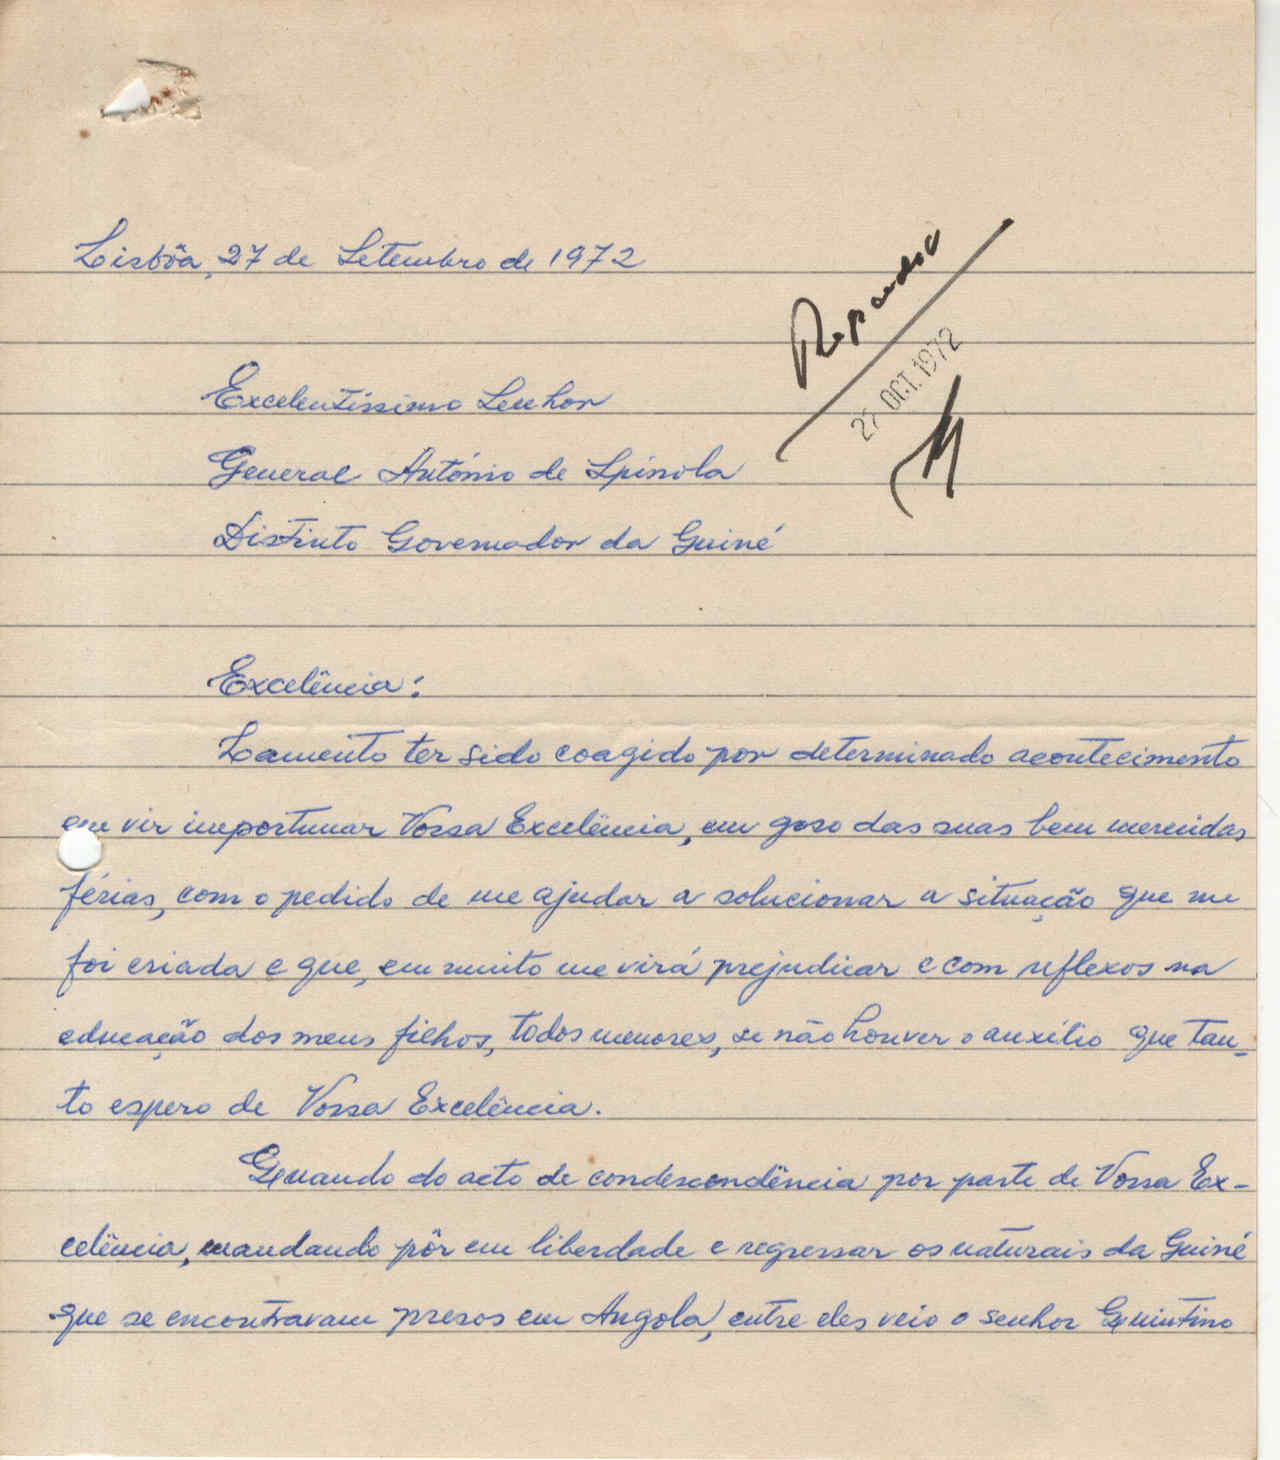 Lisbôa, 27 de Setembro de 1972
Respondido
27 OCT. 1972
Excelentíssimo Senhor
General António de Spínola
Distinto Governador da Guiné
Excelência:
Lamento ter sido coagido por determinado acontecimento
em vir importunar Vossa Excelência, em goso das suas bem merecidas
férias, com o pedido de me ajudar a solucionar a situação que me
foi criada e que, em muito me virá prejudicar e com reflexos na
educação dos meus filhos, todos menores, se não houver o auxílio que tan-
to espero de Vossa Excelência.
Quando do acto de condescendência por parte de Vossa Ex-
celência, mandando pôr em liberdade e regressar os naturais da Guiné
que se encontravam presos em Angola, entre eles veio o senhor Quintino